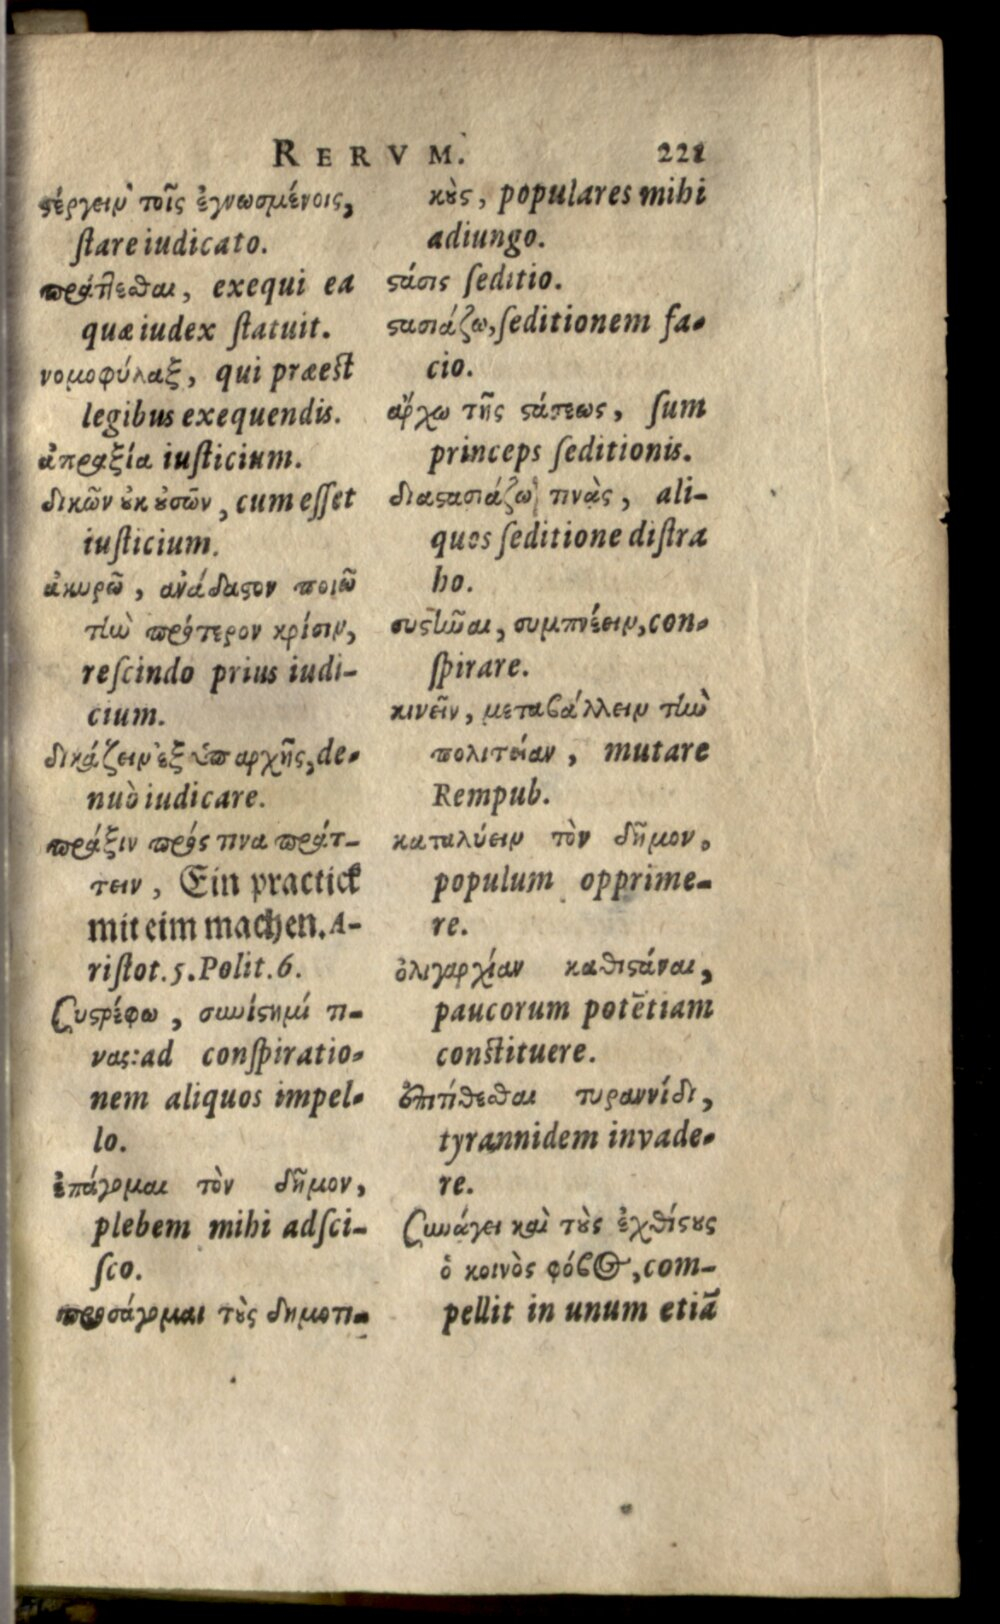 RERVM. 221
ϛέργειν τοῖς ἐγνωσμένοις,
ſtare iudicato.
πράττεσθαι, exequi ea
quæ iudex ſtatuit.
νομοφύλαξ, qui præeſt
legibus exequendis.
ἀπραξία iuſticium.
δικῶν ȣκ ȣσῶν, cum eſſet
iuſticium.
ἀκυρῶ, ἀνάδαϛον ποιῶ
τὴν πρότερον κρίσιν,
reſcindo prius iudi-
cium.
δικάζειν ἐξ ὑπαρχῆς, de-
nuò iudicare.
πράξιν πρός τινα πράτ-
τειν, Ein practick
mit eim machen. A-
riſtot. 5. Polit. 6.
Συϛρέφω, συνίϛημί τι-
νας: ad conſpiratio-
nem aliquos impel-
lo.
ἐπάγομαι τὸν δῆμον,
plebem mihi adſci-
ſco.
προσάγομαι τȣ̀ς δημοτι-
κȣ̀ς, populares mihi
adiungo.
ϛάσις ſeditio.
ϛασιάζω, ſeditionem fa-
cio.
ἄρχω τῆς ϛάσεως, ſum
princeps ſeditionis.
διαϛασιάζω τινὰς, ali-
quos ſeditione diſtra
ho.
συϛῆναι, συμπνέειν, con-
ſpirare.
κινεῖν, μεταβάλλειν τὴν
πολιτείαν, mutare
Rempub.
καταλύειν τὸν δῆμον,
populum opprime-
re.
ὀλιγαρχίαν καθιϛάναι,
paucorum potētiam
conſtituere.
ἐπιτίθεσθαι τυραννίδι,
tyrannidem inuade-
re.
Συνάγει καὶ τȣ̀ς ἐχθίϛȣς
ὁ κοινὸς φόβος, com-
pellit in unum etiā